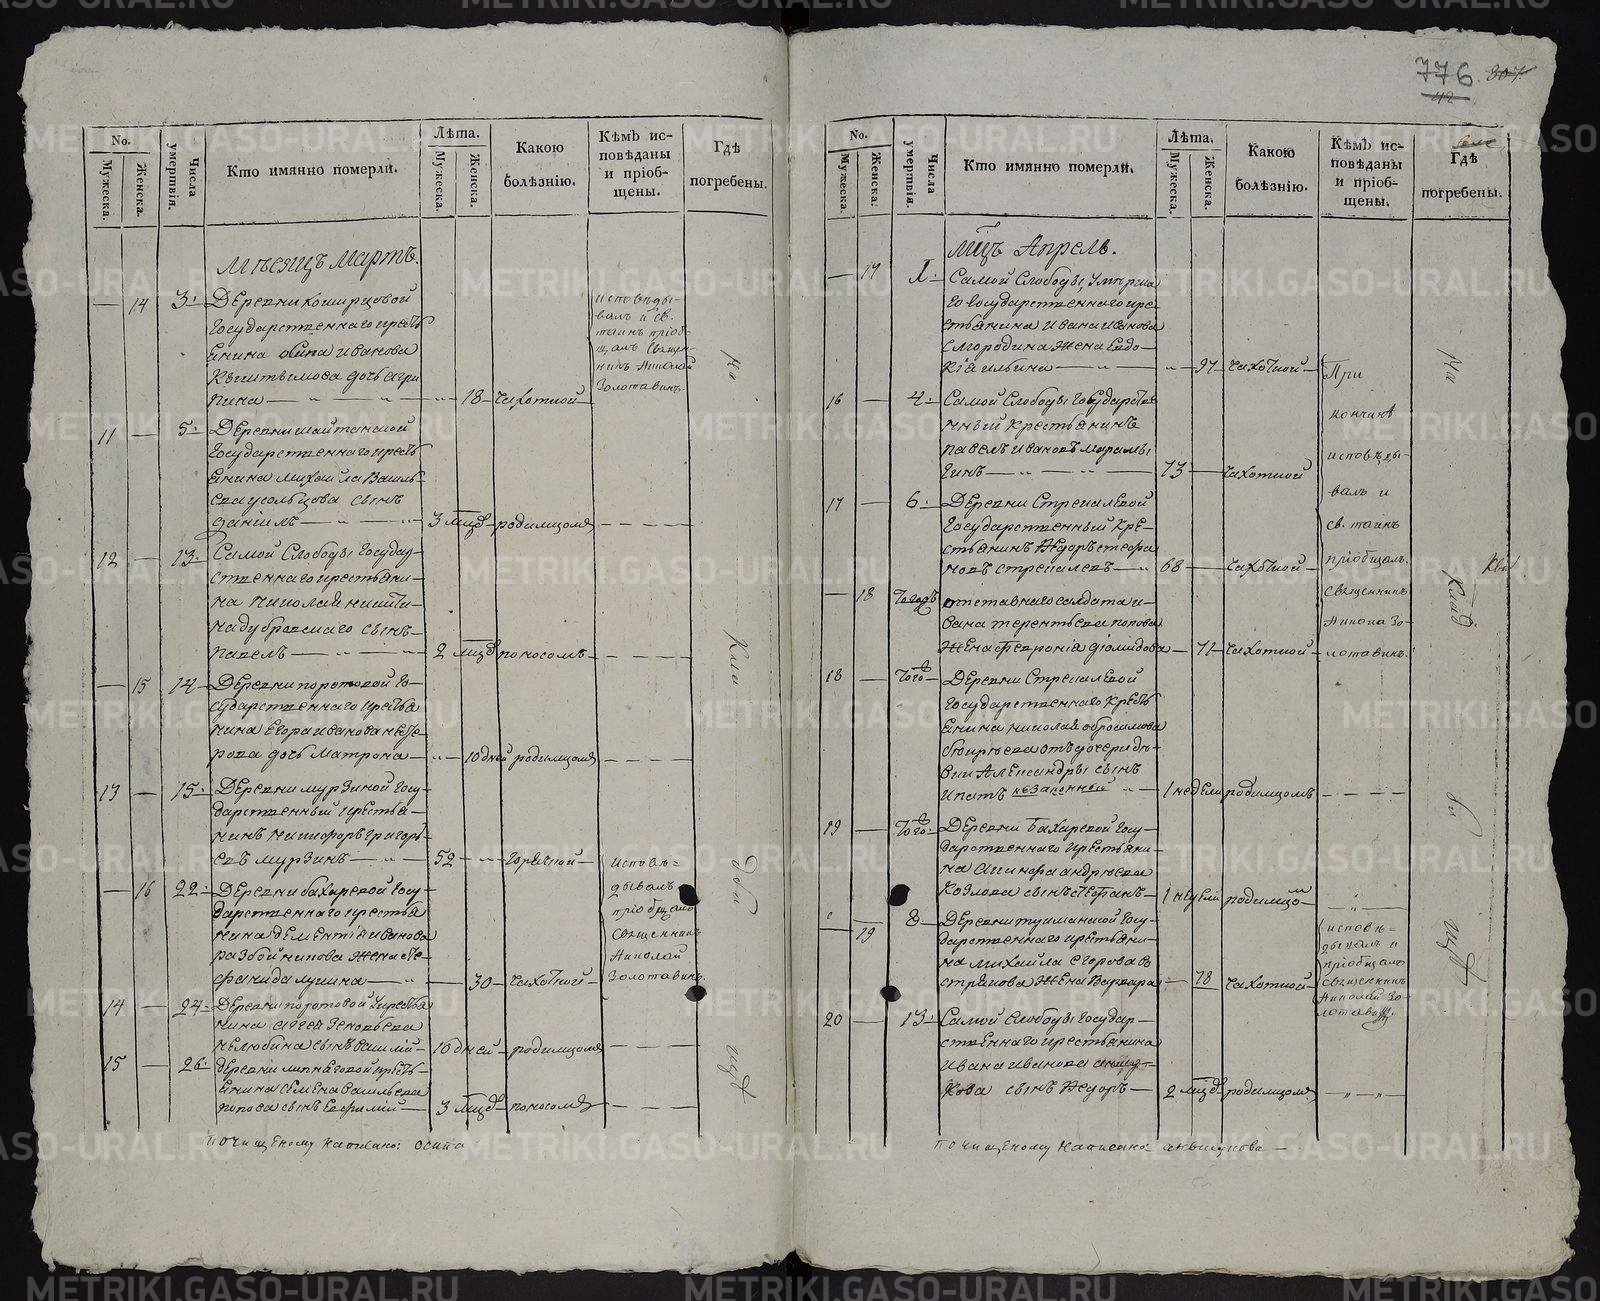 776 807.
42
No.
Мужеска.
Женска.
Числа умертвія.
Кто имянно померли.
Лѣта.
Мужеска.
Женска.
Какою
болѣзнію.
Кѣмъ ис-
повѣданы
и пріоб-
щены.
Гдѣ
погребены.
Мѣсяцъ Мартъ.
— 14 3. Деревни Коширцовой
государственнаго кресть
янина Осипа Иванова
дочь Агри
пина — 18 — чахоткой —
исповѣды-
валъ и св.
таинъ пріоб-
щалъ Священ-
никъ Николай
Золотавинъ.
11 — 5. Деревни Шайтанской
государственнаго кресть
янина Михайла Василь
ева Усольцова сынъ
Даніилъ — 3 мцѣ — родимцомъ —
12 — 13. Самой Слободы государ-
ственнаго крестьяни-
на Николая Никити-
на Дубровскаго сынъ
Павелъ — 2 мцѣ поносомъ —
— 15 14 — Деревни Коротковой го-
сударственнаго крестья
нина Егора Иванова
дочь Матрона — 10 дней родимцомъ —
13 — 15. Деревни Мурзиной госу-
дарственный крестья-
нинъ Никифоръ Григорь-
евъ Мурзинъ — 52 — горячкой —
исповѣ-
дывалъ
пріобщалъ
Священникъ
Николай
Золотавинъ.
— 16 22. Деревни Бахаревой госу-
дарственнаго крестья
нина Дементія Иванова
Разбойникова жена Сте-
фанида Лукина — 30 — чахоткой —
14 — 24. Деревни Коротковой кресть
янина Зеновьева
Нелюбина сынъ Василій — 10 дней — родимцомъ —
15 — 26. Деревни Липняговой кресть-
янина Семена Васильева
Попова сынъ Евфимій — 3 мцѣ — поносомъ —
На Клад би щѣ
по чищеному написано: Осипа
No.
Мужеска.
Женска.
Числа умертвія.
Кто имянно померли.
Лѣта.
Мужеска.
Женска.
Какою
болѣзнію.
Кѣмъ ис-
повѣданы
и пріоб-
щены.
Гдѣ
погребены.
Мцъ Апрель.
— 17 1. Самой Слободы, Умерша
го государственнаго кре-
стьянина Ивана Иванова
Смородина жена Евдо-
кія Ильина — 97 — чахоткой —
16 — 4. Самой Слободы государстве
нный крестьянинъ
Павелъ Ивановъ
гинъ — 73 — чахоткой
17 — 6. Деревни Стрекалевой
государственный кре-
стьянинъ Ѳедоръ Стефа
новъ Стрекалевъ — 68 — чахоткой —
— 18 Тогожъ отставнаго солдата И-
вана Терентьева Попова
жена Февронія Діомидова — 71 — чахоткой —
При
кончинѣ
исповѣды-
валъ и
св. таинъ
пріобщалъ
священникъ
Николай Зо-
лотавинъ.
18 — Того — Деревни Стрекалевой
государственнаго кресть
янина Николая Обросимова
отъ дочери дѣ-
вки Александры сынъ
Ипатъ незаконный — 1 недели родимцомъ —
19 — Того. Деревни Бахаревой госу-
дарственнаго крестьяни-
на Никифора Андреева
Козлова сынъ Стефанъ — 1 недели родимцо м —
— 19 8. Деревни Туманской госу-
дарственнаго крестьяни-
на Михайла Егорова
жена Варвара — 78 чахоткой —
исповѣ-
дывалъ и
пріобщалъ
священникъ
Николай Зо-
лотавинъ.
20 — 13. Самой Слободы государ-
ственнаго крестьянина
Ивана Иванова Аньшу-
кова сынъ Ѳедоръ — 2 мцѣ родимцомъ —
На Клад би щѣ
по чищеному написано: Аньшукова —
METRIKI.GASO-URAL.RU